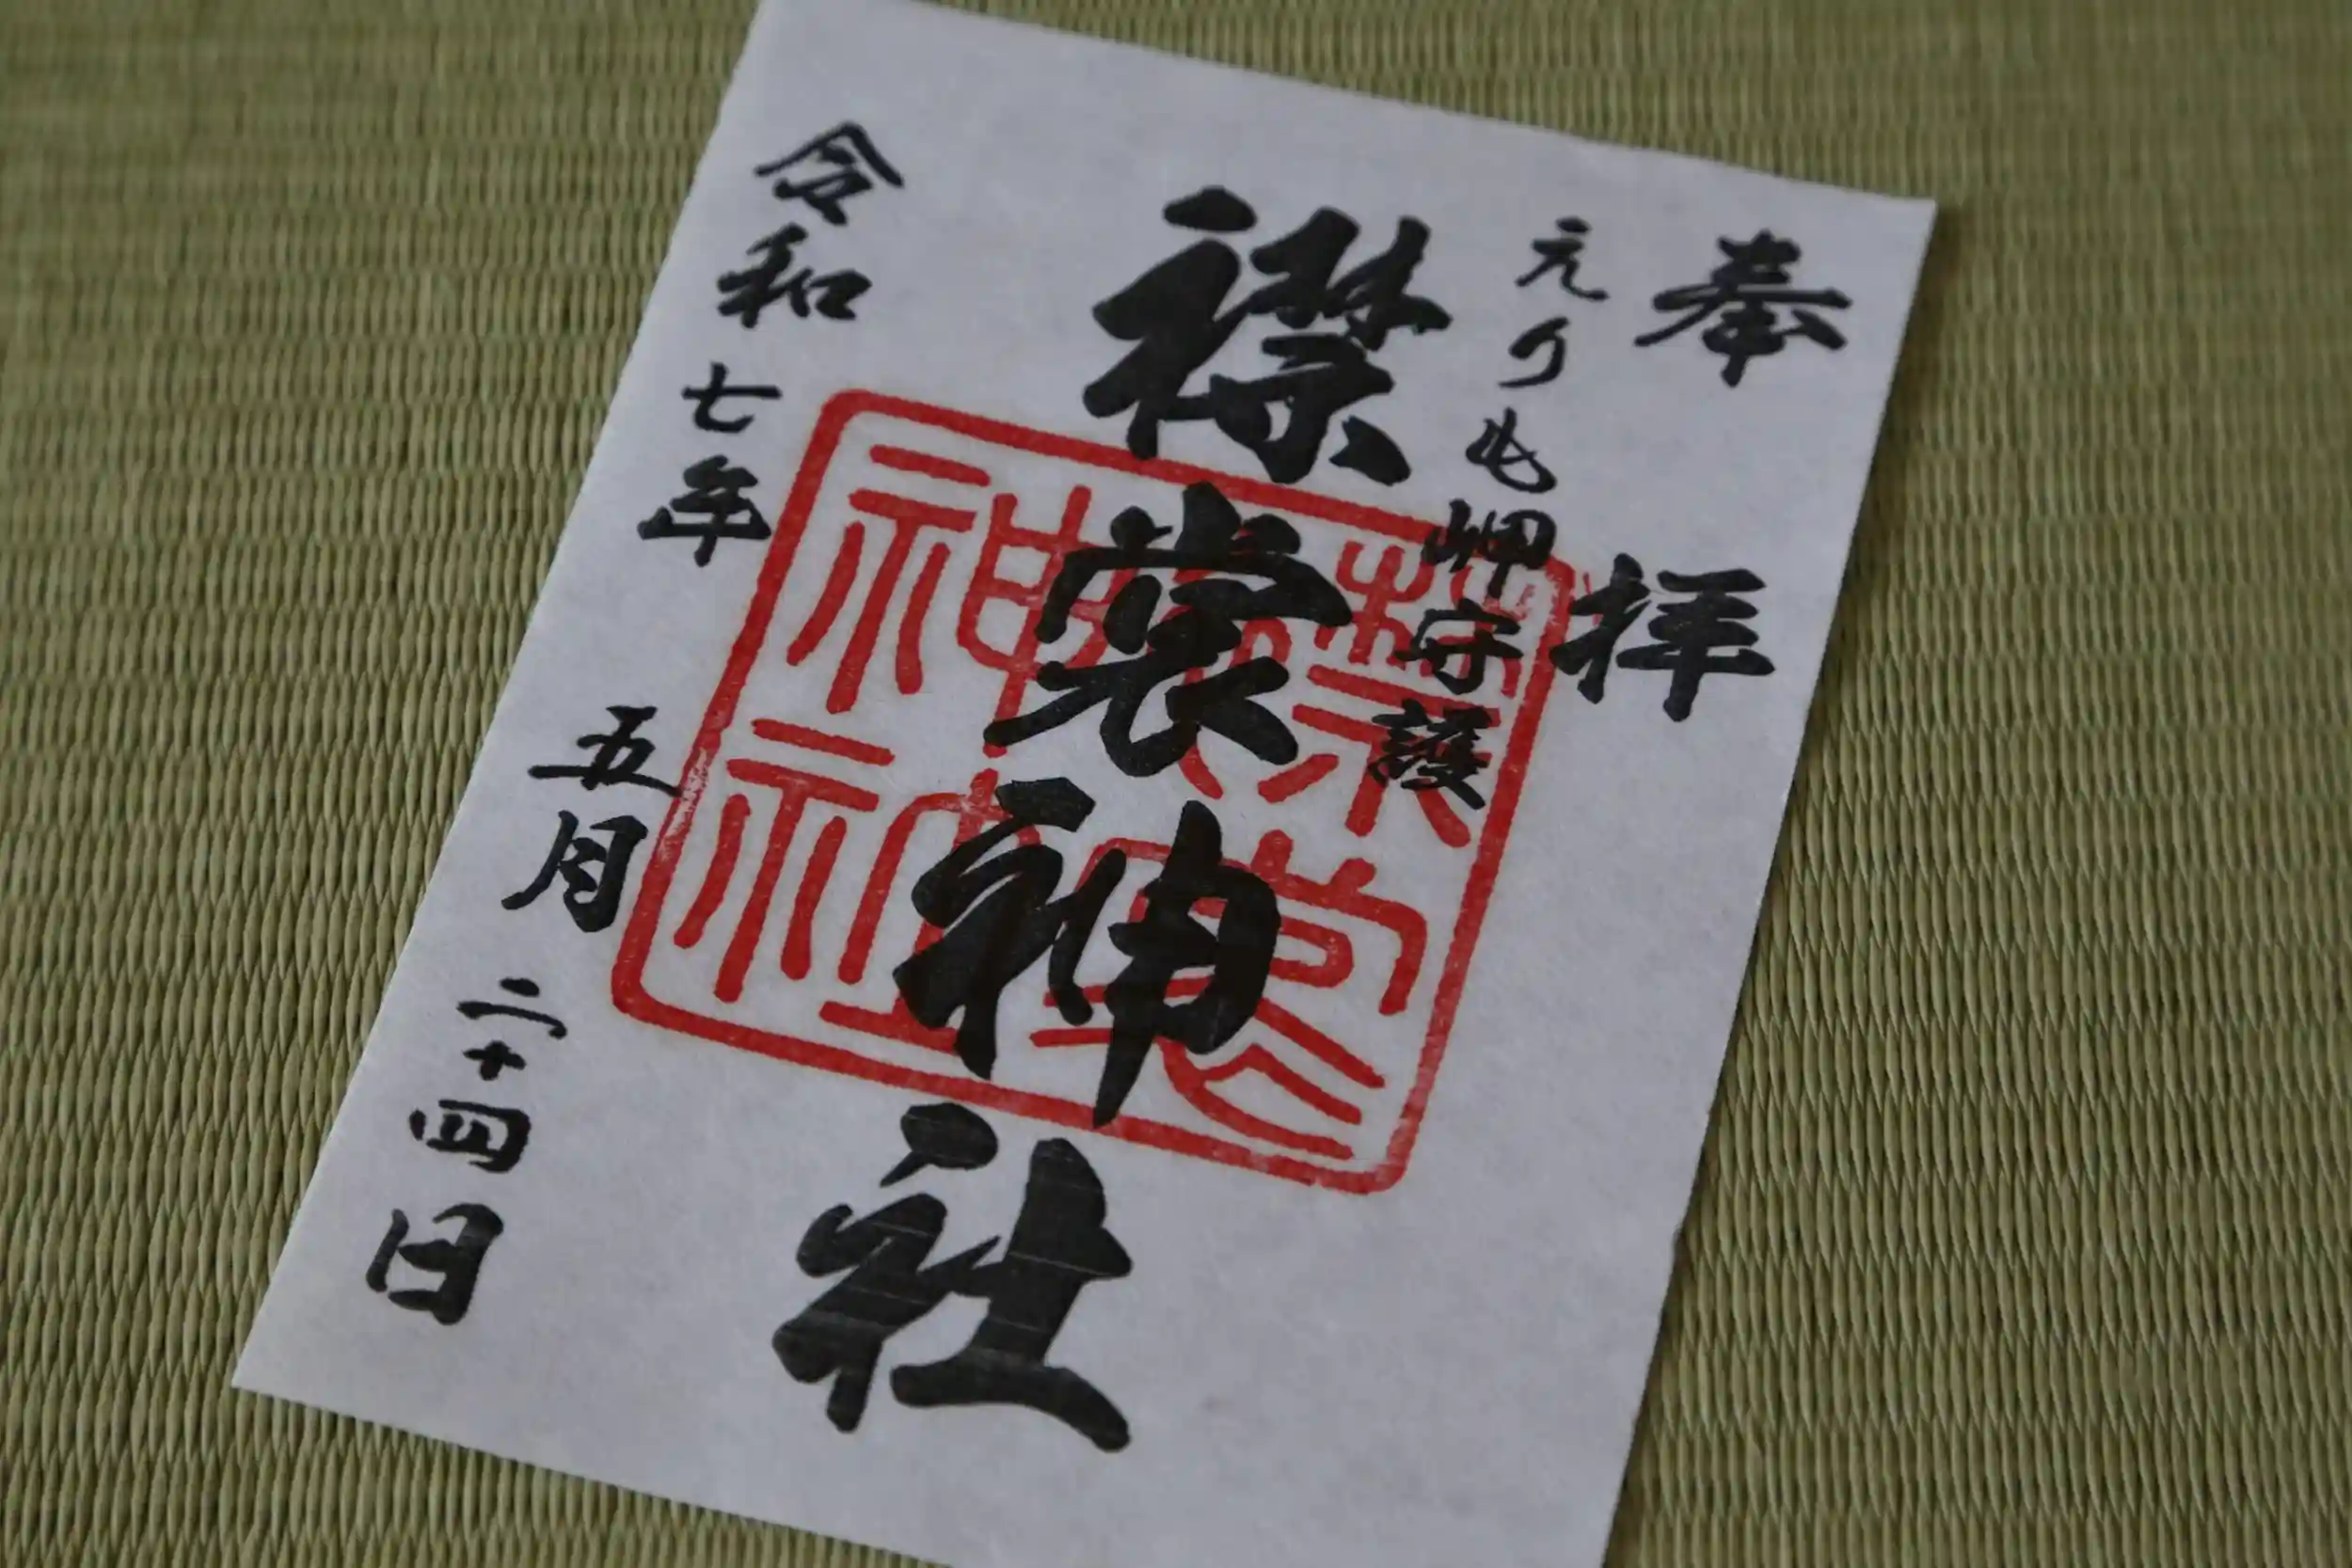 奉拝
えりも岬守護
襟裳神社
襟裳神社
令和七年五月二十四日